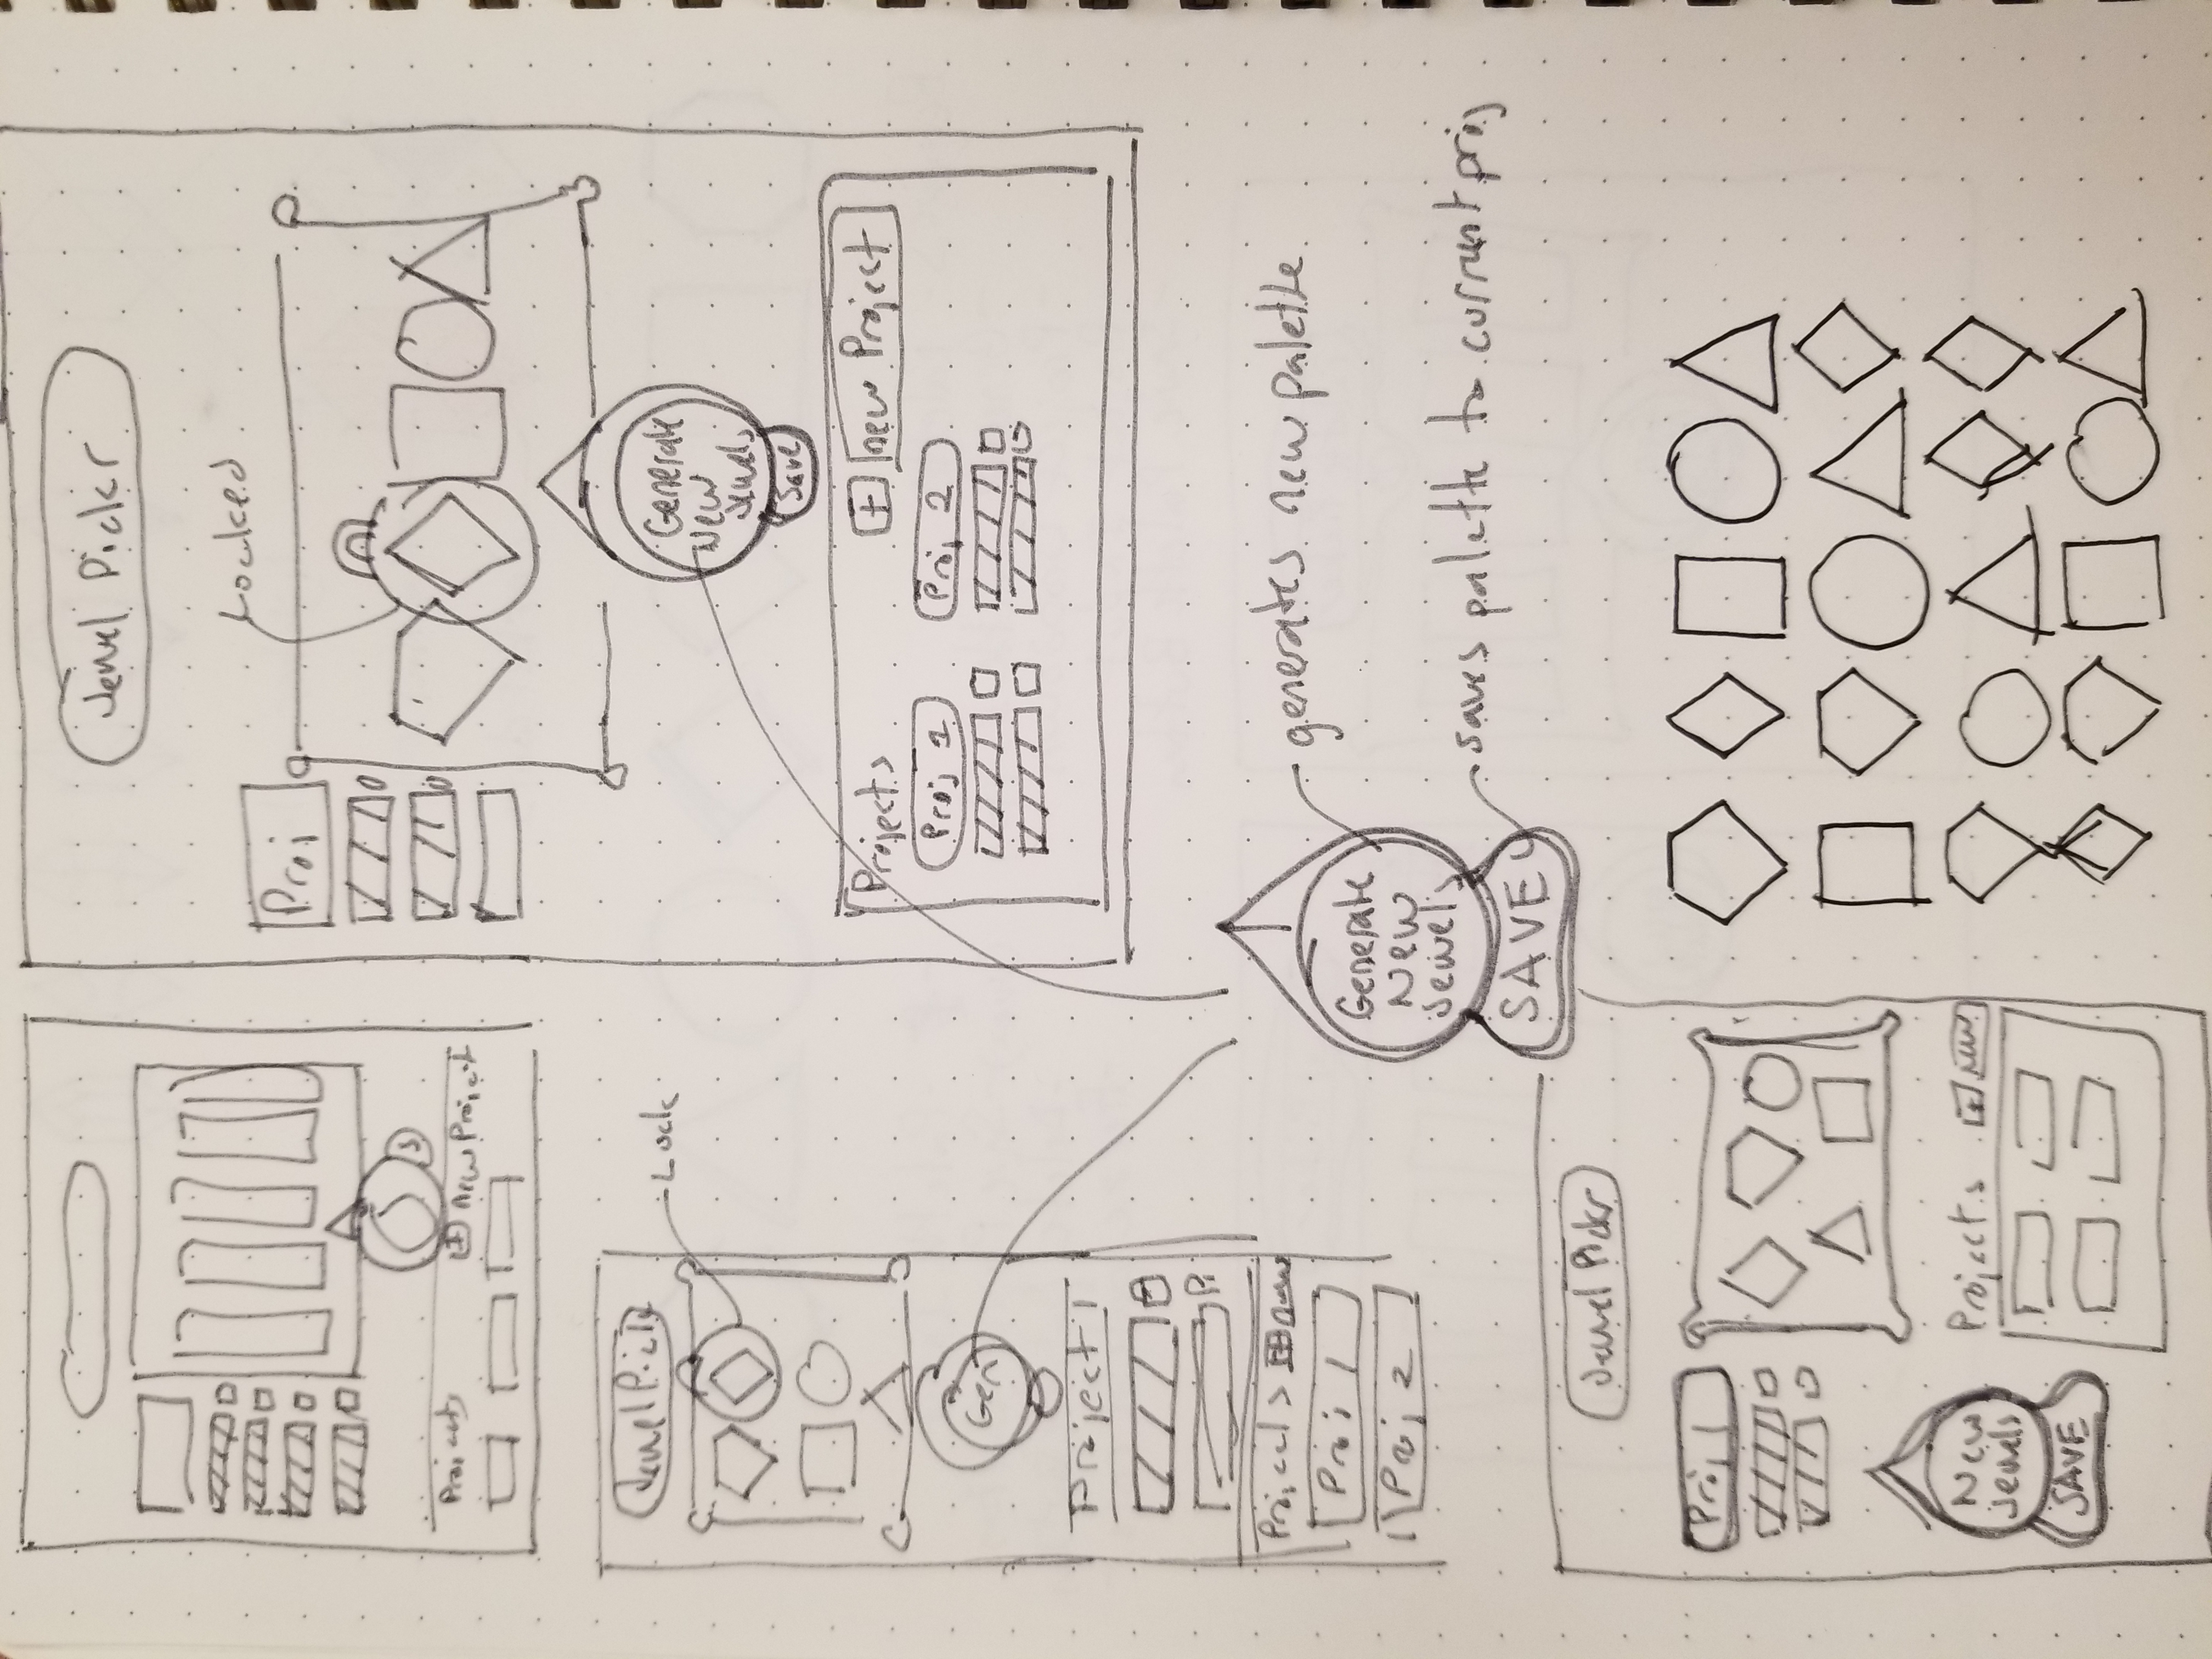 Projects
+ new Project
Jewel Pickr
Locked
Proj
Generate
New
Jewels
Save
Projects
+ new Project
Proj 1
Proj 2
Lock
Gen
Project 1
Projects
+ new
Proj 1
Proj 2
Generate
New
Jewels
SAVE
generates new palette
saves palette to current proj
Jewel Pickr
Proj 1
New
Jewels
SAVE
Projects
+ new